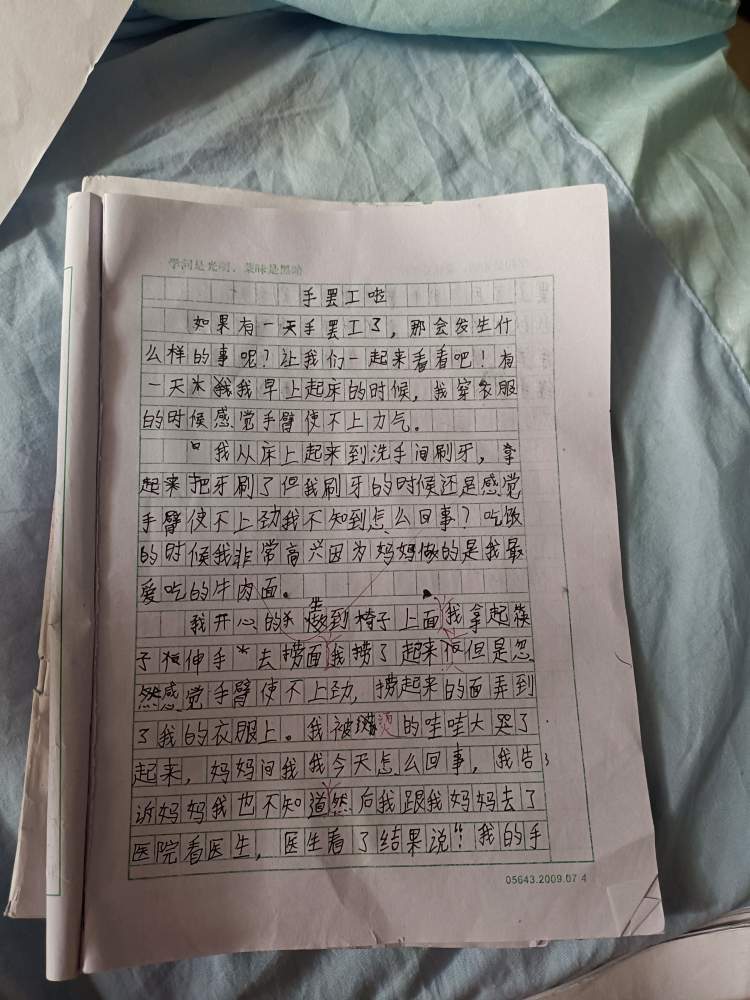 学问是光明，蒙昧是黑暗
手罢工啦
如果有一天手罢工了，那会发生什
么样的事呢？让我们一起来看看吧！有
一天我早上起床的时候，我穿衣服
的时候感觉手臂使不上力气。
我从床上起来到洗手间刷牙，拿
起来把牙刷了但我刷牙的时候还是感觉
手臂使不上劲我不知到怎么回事？吃饭
的时候我非常高兴因为妈妈做的是我最
爱吃的牛肉面。
我开心的坐到椅子上面我拿起筷
子伸手去捞面我捞了起来但是忽
然感觉手臂使不上劲，捞起来的面弄到
了我的衣服上。我被烫的哇哇大哭了
起来，妈妈问我我今天怎么回事，我告
诉妈妈我也不知道然后我跟我妈妈去了
医院看医生，医生看了结果说“我的手
05643.2009.07 4